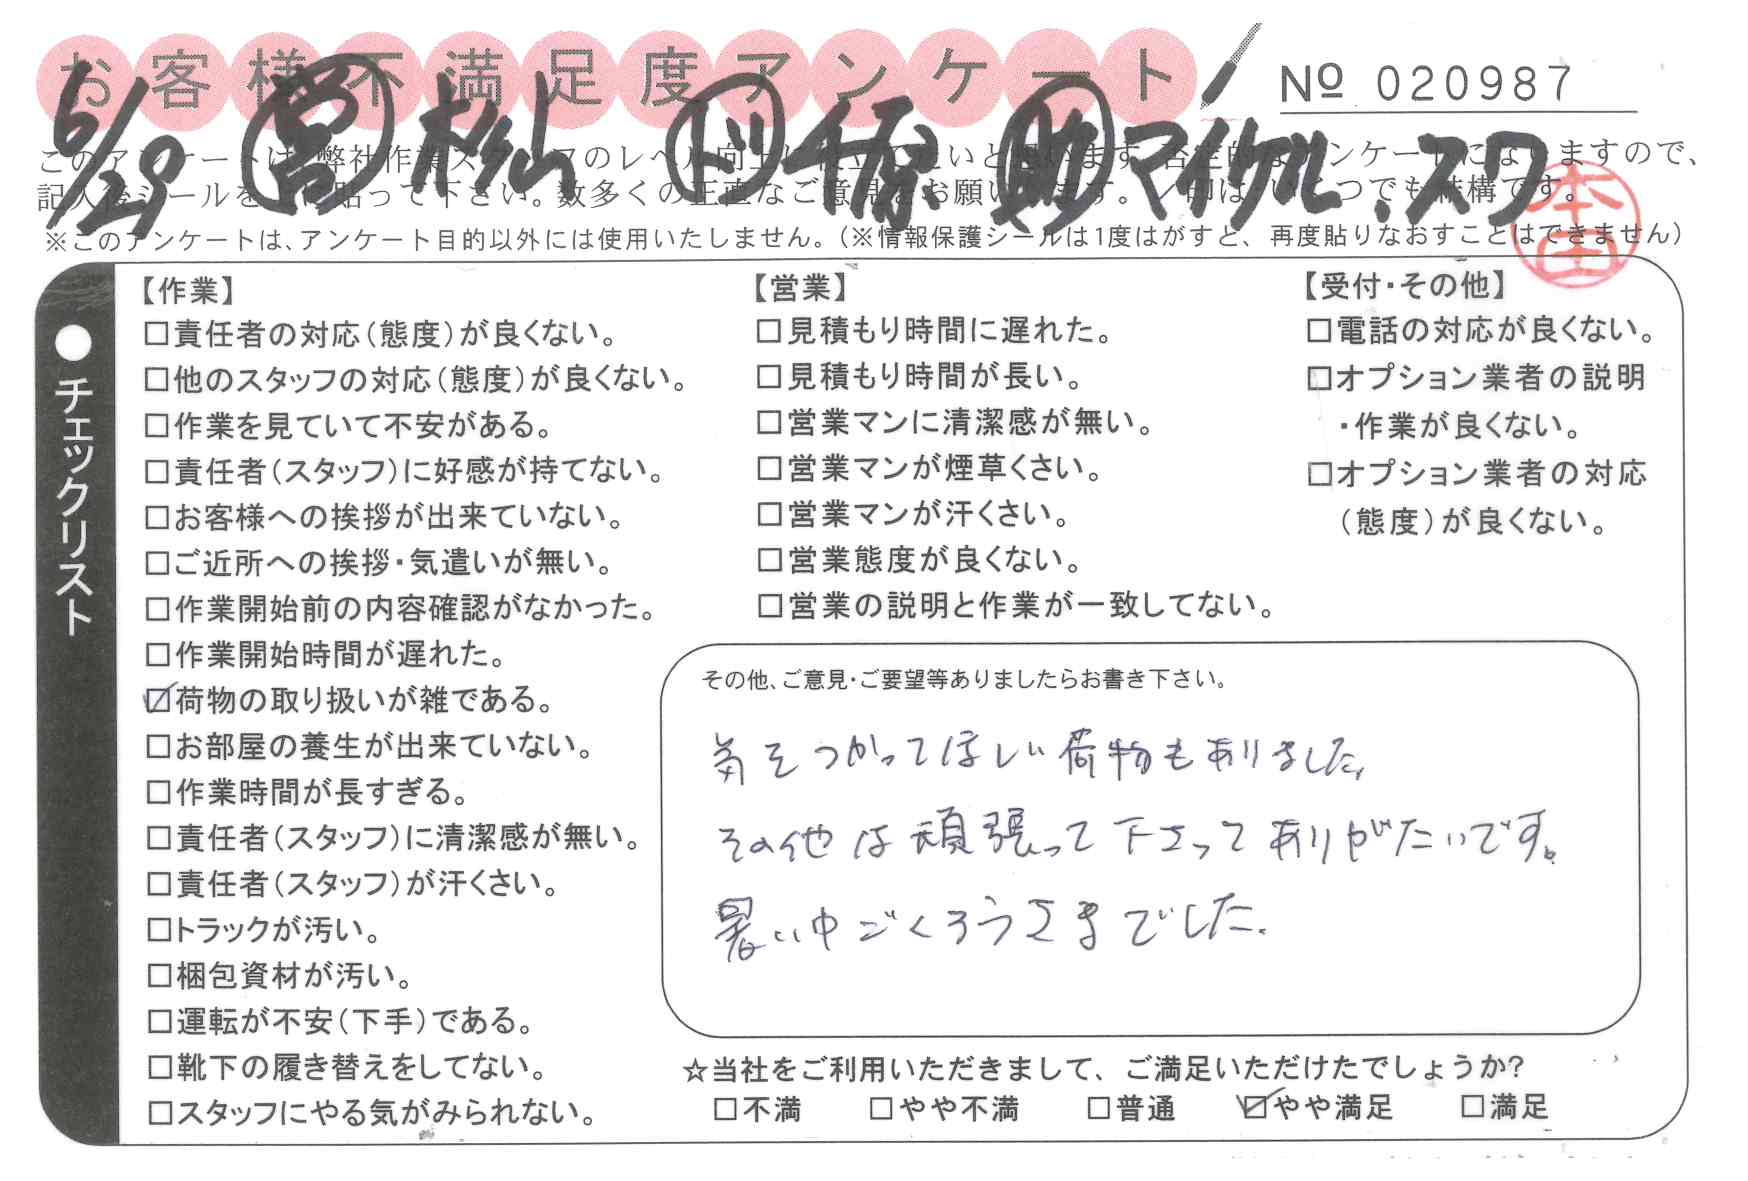 お客様不満足度アンケート
№ 020987
6/29 営 松山 ドリ 千原 助 マイケル、スワ
このアンケートは、弊社作業スタッフのレベル向上に役立てたいと思います。否定的なアンケートになりますので、
記入後シールを上に貼って下さい。数多くの正直なご意見をお願いします。✓印は、いくつでも結構です。
※このアンケートは、アンケート目的以外には使用いたしません。(※情報保護シールは1度はがすと、再度貼りなおすことはできません)
本田
●チェックリスト
【作業】
□責任者の対応(態度)が良くない。
□他のスタッフの対応(態度)が良くない。
□作業を見ていて不安がある。
□責任者(スタッフ)に好感が持てない。
□お客様への挨拶が出来ていない。
□ご近所への挨拶・気遣いが無い。
□作業開始前の内容確認がなかった。
□作業開始時間が遅れた。
☑荷物の取り扱いが雑である。
□お部屋の養生が出来ていない。
□作業時間が長すぎる。
□責任者(スタッフ)に清潔感が無い。
□責任者(スタッフ)が汗くさい。
□トラックが汚い。
□梱包資材が汚い。
□運転が不安(下手)である。
□靴下の履き替えをしてない。
□スタッフにやる気がみられない。
【営業】
□見積もり時間に遅れた。
□見積もり時間が長い。
□営業マンに清潔感が無い。
□営業マンが煙草くさい。
□営業マンが汗くさい。
□営業態度が良くない。
□営業の説明と作業が一致してない。
【受付・その他】
□電話の対応が良くない。
□オプション業者の説明
・作業が良くない。
□オプション業者の対応
(態度)が良くない。
その他、ご意見・ご要望等ありましたらお書き下さい。
気をつかってほしい荷物もありました。
その他は頑張って下さってありがたいです。
暑い中ごくろうさまでした。
☆当社をご利用いただきまして、ご満足いただけたでしょうか?
□不満 □やや不満 □普通 ☑やや満足 □満足